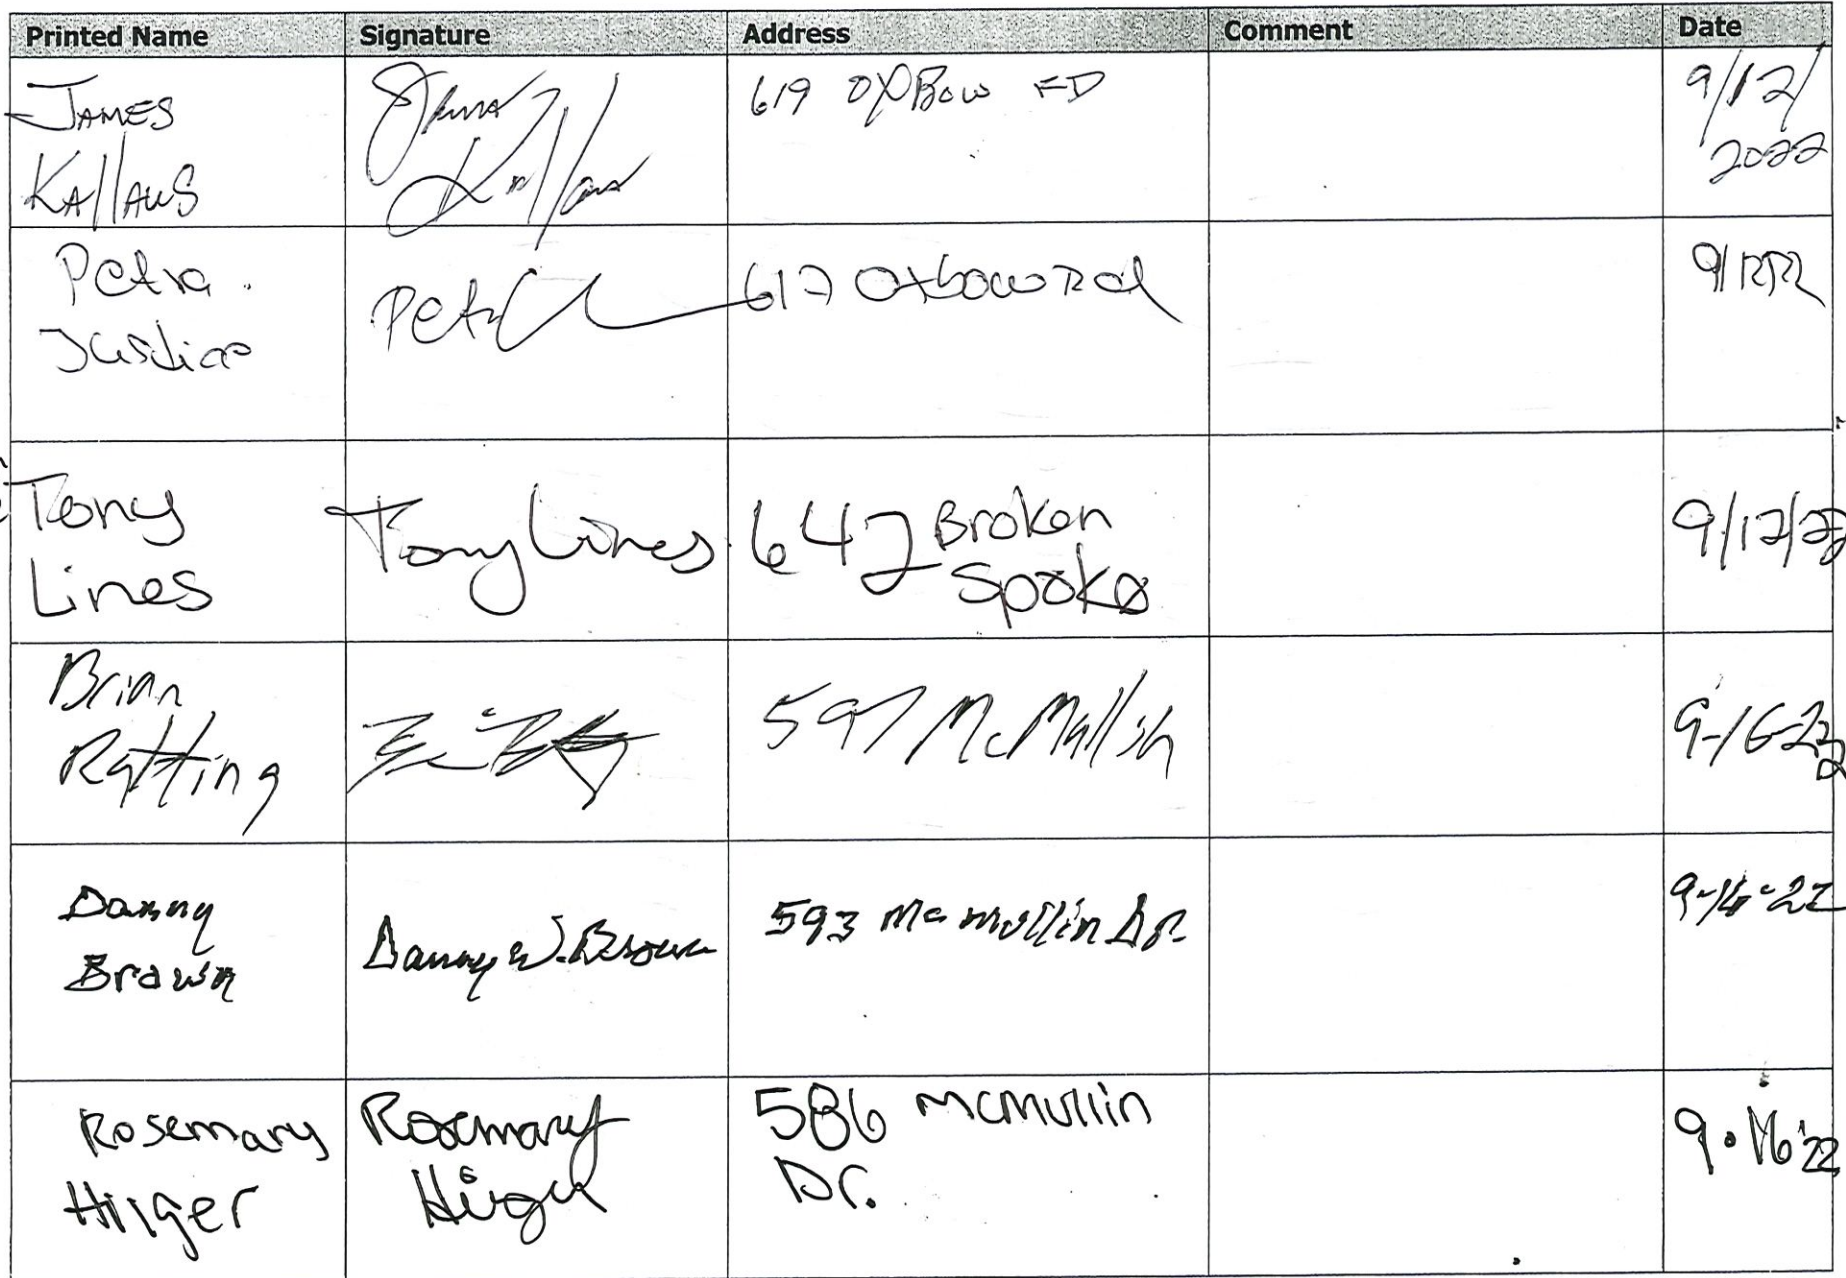 Printed Name Signature Address Comment Date
JAMES KALLAUS James Kallaus 619 OXBOW RD 9/12/2022
Petra Justice Petra 617 Oxbow Rd 9/12/22
Tony Lines Tony Lines 642 Broken Spoke 9/12/22
Brian 597 9-16-22
Danny Brown Danny W. Brown 593 Mc mullin Dr. 9-16-22
Rosemary Hilger Rosemary Hilger 586 McMullin Dr. 9.16.22